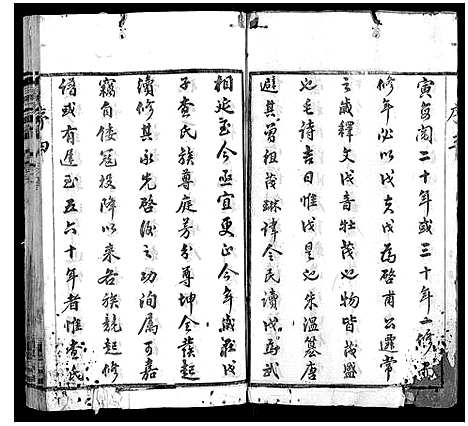 寅每閱二十年或三十年一修而
修年必以戊夫戊為啓甫公遷常
之歲釋文戊音牡茂也物皆茂盛
也毛詩吉日惟戊是也朱溫簒唐
避其曾祖茂琳諱令民讀戊為武
相延至今亟宜更正今年歲在戊
子查氏族尊庭芳分尊坤全議起
續修其承先啓後之功洵屬可嘉
竊自倭冦投降以來各族競起修
譜或有屋至五六十年者惟查氏
序四
序三